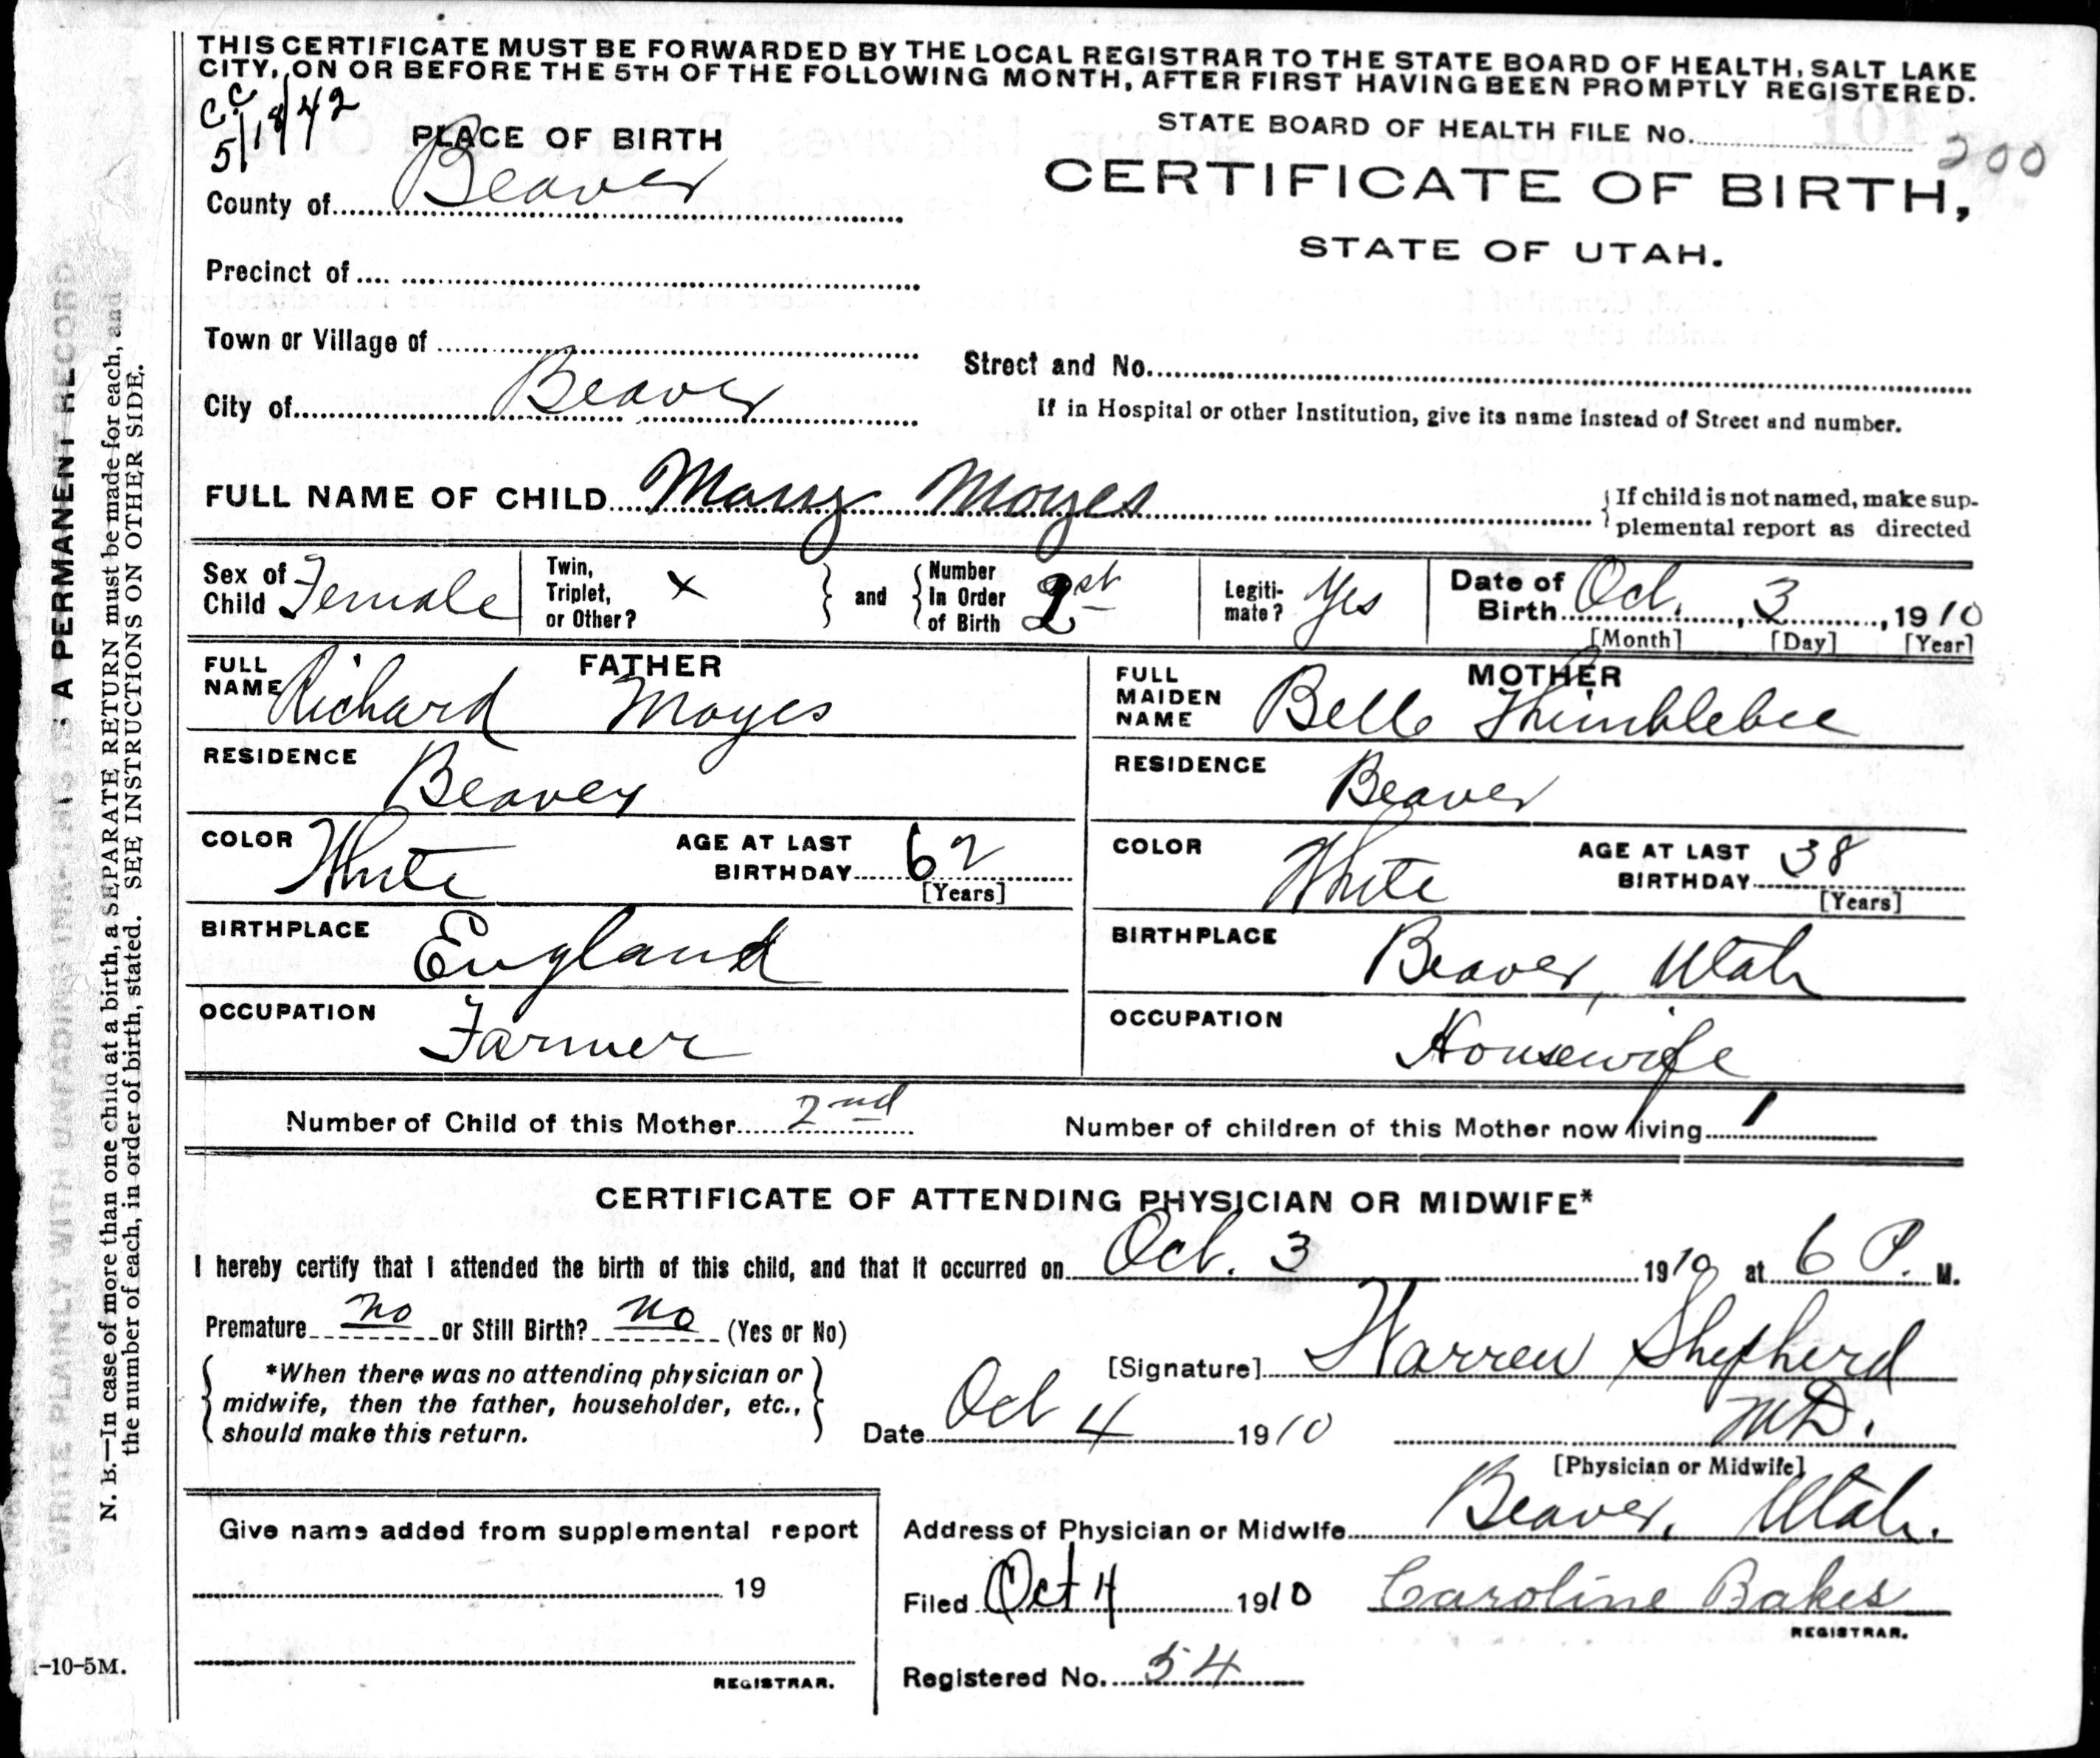 THIS CERTIFICATE MUST BE FORWARDED BY THE LOCAL REGISTRAR TO THE STATE BOARD OF HEALTH, SALT LAKE
CITY, ON OR BEFORE THE 5TH OF THE FOLLOWING MONTH, AFTER FIRST HAVING BEEN PROMPTLY REGISTERED.
C.C.
5/18/42
PLACE OF BIRTH
STATE BOARD OF HEALTH FILE No.
200
CERTIFICATE OF BIRTH,
STATE OF UTAH.
County of Beaver
Precinct of
Town or Village of
Street and No.
City of Beaver
If in Hospital or other Institution, give its name instead of Street and number.
FULL NAME OF CHILD Mary Moyes
If child is not named, make sup-
plemental report as directed
Sex of Child Female
Twin, Triplet, or Other? X
and
Number In Order of Birth 2st
Legiti-mate? Yes
Date of Birth Oct. 3, 1910
[Month] [Day] [Year]
FATHER
FULL NAME Richard Moyes
RESIDENCE Beaver
COLOR White AGE AT LAST BIRTHDAY 62
[Years]
BIRTHPLACE England
OCCUPATION Farmer
MOTHER
FULL MAIDEN NAME Belle Thimblebee
RESIDENCE Beaver
COLOR White AGE AT LAST BIRTHDAY 38
[Years]
BIRTHPLACE Beaver, Utah
OCCUPATION Housewife
Number of Child of this Mother 2nd Number of children of this Mother now living 1
CERTIFICATE OF ATTENDING PHYSICIAN OR MIDWIFE*
I hereby certify that I attended the birth of this child, and that it occurred on Oct. 3 1910 at 6 P. M.
Premature no or Still Birth? no (Yes or No)
*When there was no attending physician or
midwife, then the father, householder, etc.,
should make this return.
[Signature] Warren Shepherd
M.D.
Date Oct 4 1910
[Physician or Midwife]
Give name added from supplemental report
19
REGISTRAR.
Address of Physician or Midwife Beaver, Utah.
Filed Oct 4 1910 Caroline Bakes
REGISTRAR.
Registered No. 54
WRITE PLAINLY WITH UNFADING INK—THIS IS A PERMANENT RECORD
N. B.—In case of more than one child at a birth, a SEPARATE RETURN must be made for each, and
the number of each, in order of birth, stated. SEE INSTRUCTIONS ON OTHER SIDE.
1-10-5M.